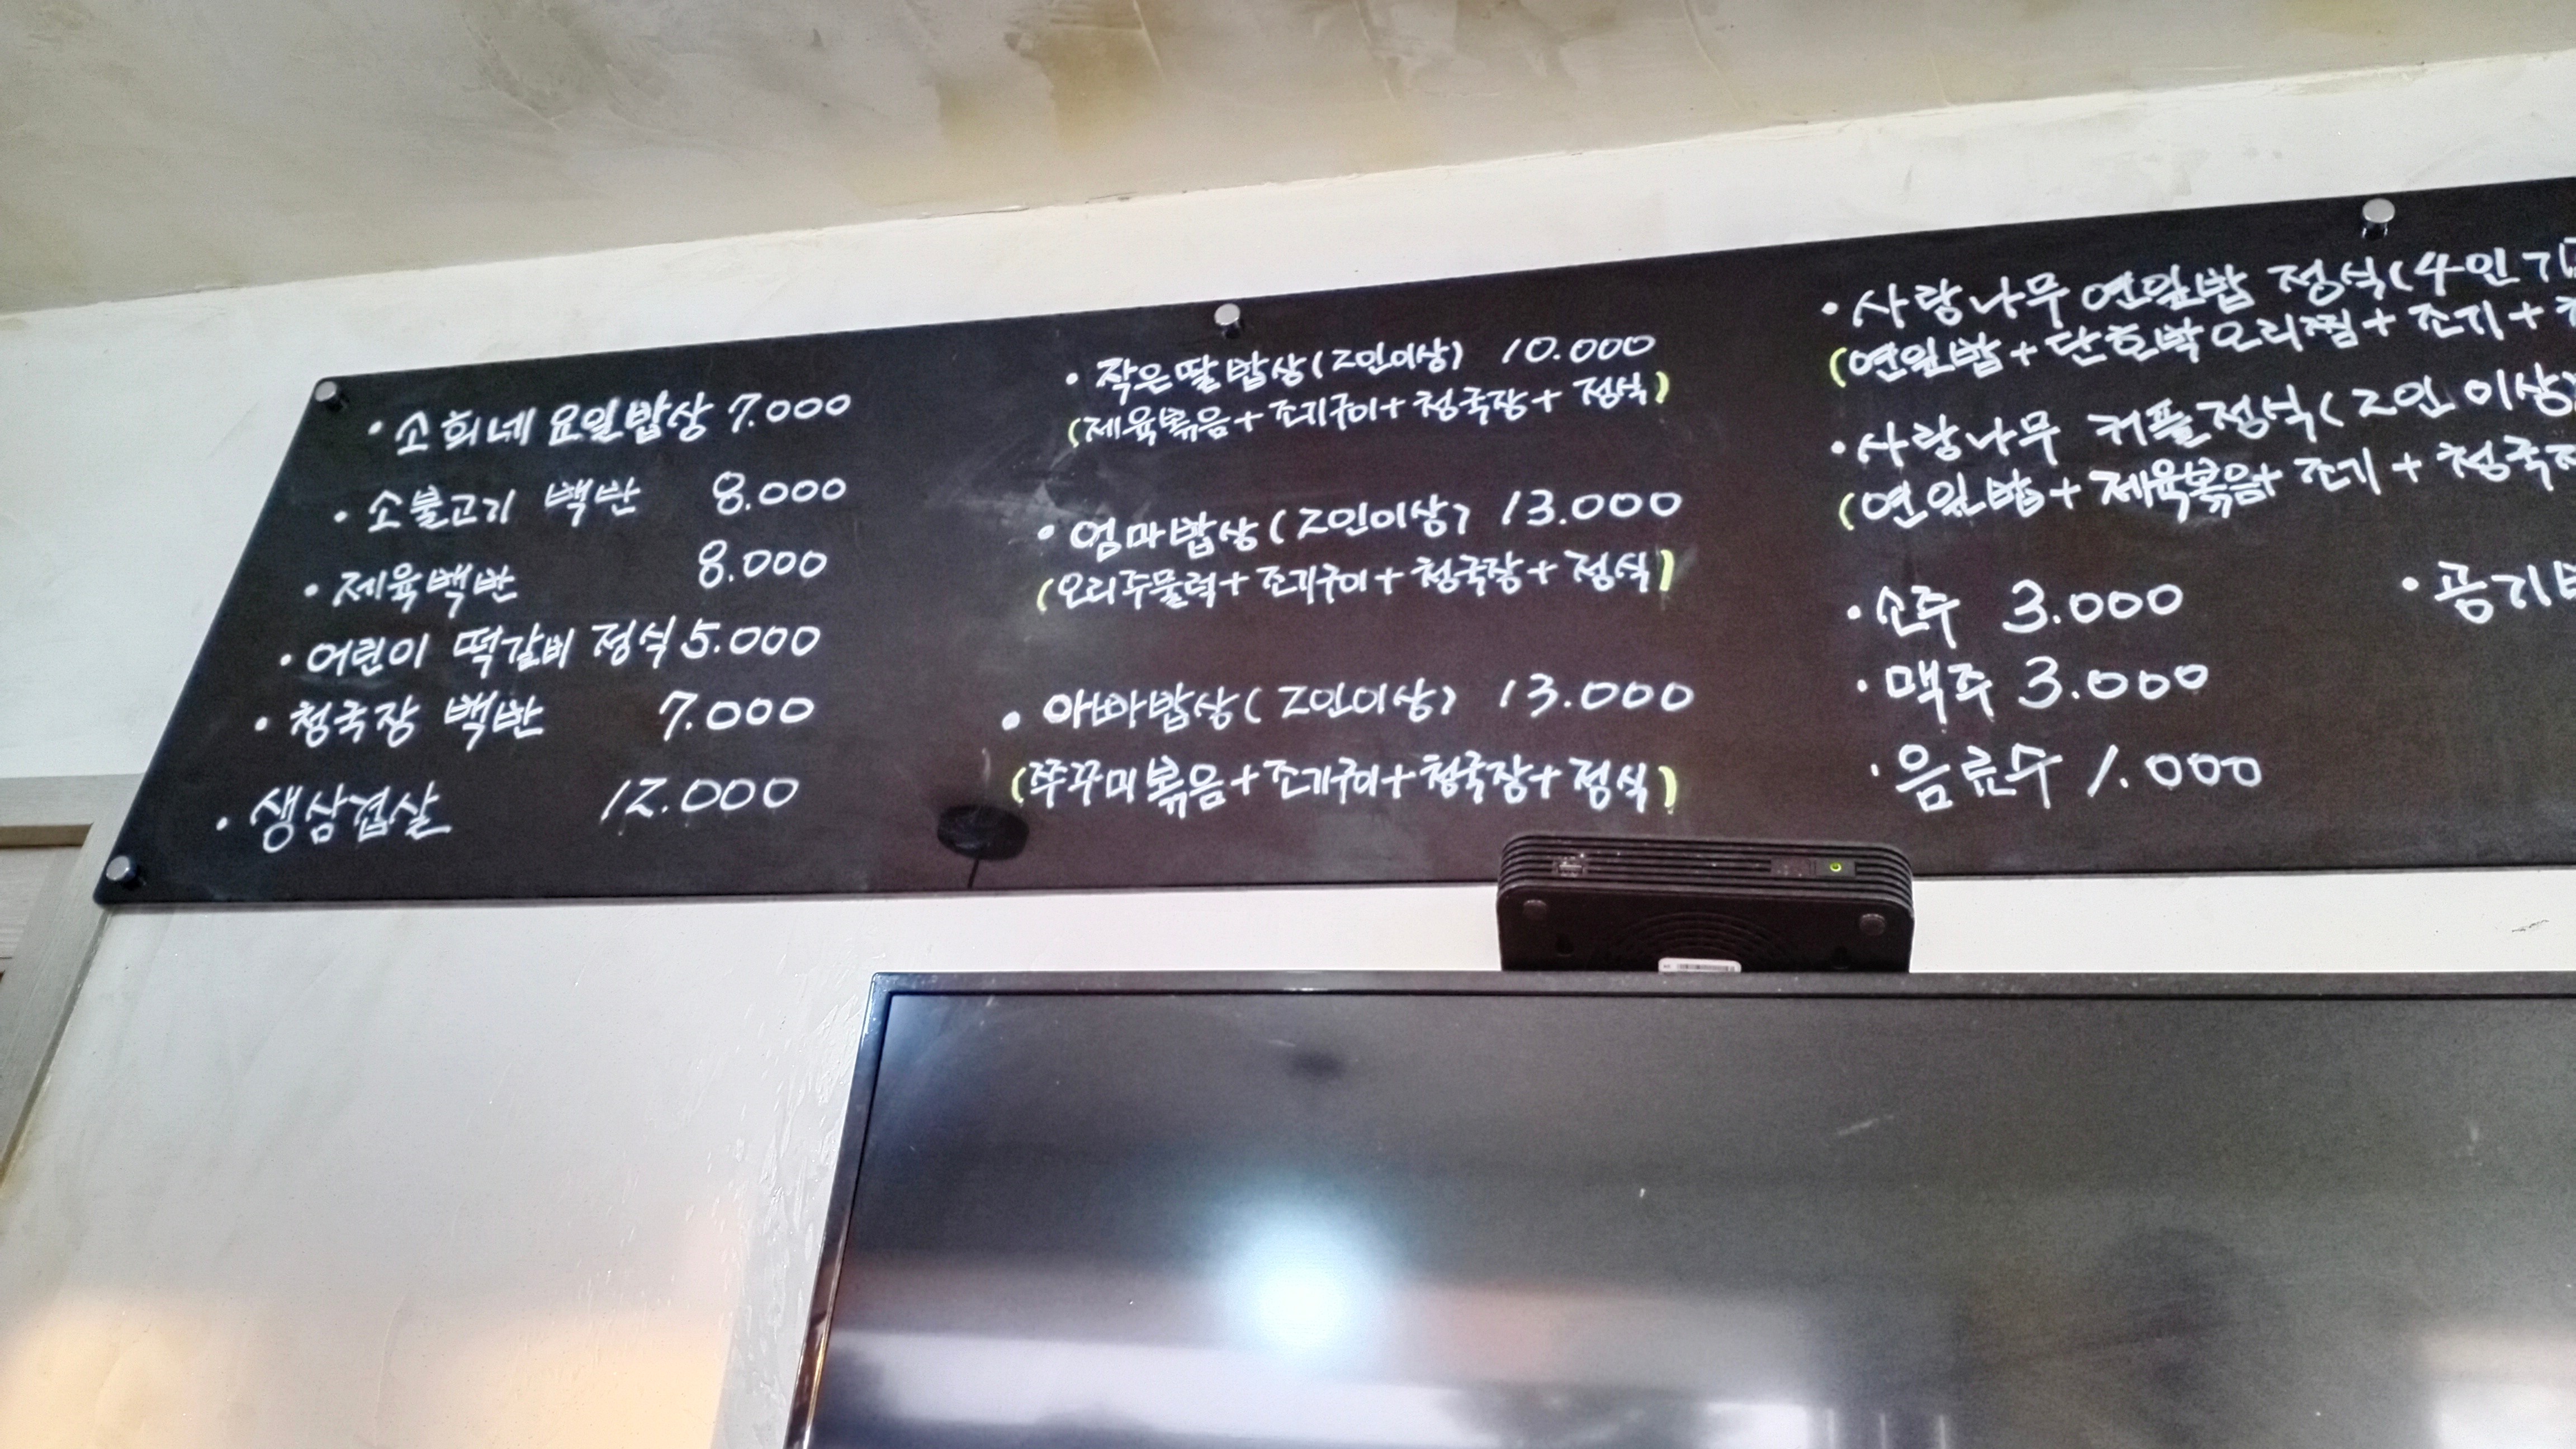 · 소희네 요일밥상 7.000
· 소불고기 백반 8.000
· 제육백반 8.000
· 어린이 떡갈비 정식 5.000
· 청국장 백반 7.000
· 생삼겹살 12.000
· 작은딸밥상(2인이상) 10.000
(제육볶음+조기구이+청국장+정식)
· 엄마밥상(2인이상) 13.000
(오리주물럭+조기구이+청국장+정식)
· 아빠밥상(2인이상) 13.000
(쭈꾸미볶음+조기구이+청국장+정식)
· 사랑나무 연잎밥 정식(4인
(연잎밥+단호박오리찜+조기+
· 사랑나무 커플정식(2인이상)
(연잎밥+제육볶음+조기+청국
· 소주 3.000
· 맥주 3.000
· 음료수 1.000
· 공기